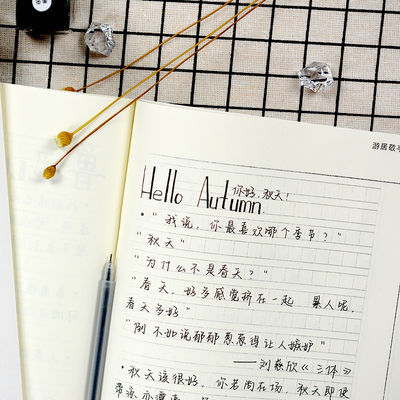 游居敬
Hello Autumn. 你好,秋天!
·"我说,你最喜欢哪个季节?"
"秋天"
"为什么不是春天?"
"春天,好多感觉挤在一起 累人呢,
春天多好"
不如说郁郁葱葱得让人嫉妒"
——刘慈欣《三体》
·秋天该很好,你若尚在场,秋天即便
带凉亦漂亮